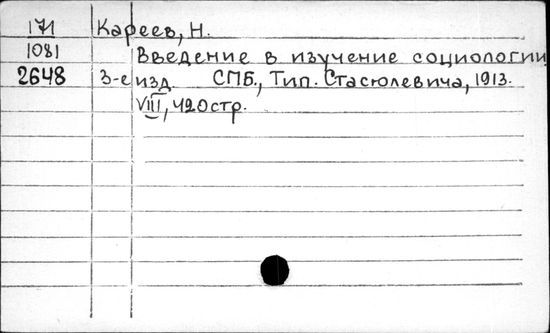 171 Кареев, Н.
1081 Введение в изучение социологии
2648 3-е изд СПБ., Тип. Стасюлевича, 1913.
VIII, 420стр.